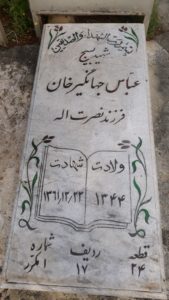 شهید بسیج
عباس جهانگیرخان
فرزند نصرت اله
ولادت شهادت
۱۳۴۴ ۱۳۶۱/۱۲/۲۲
قطعه ردیف شماره
۲۴ ۱۷